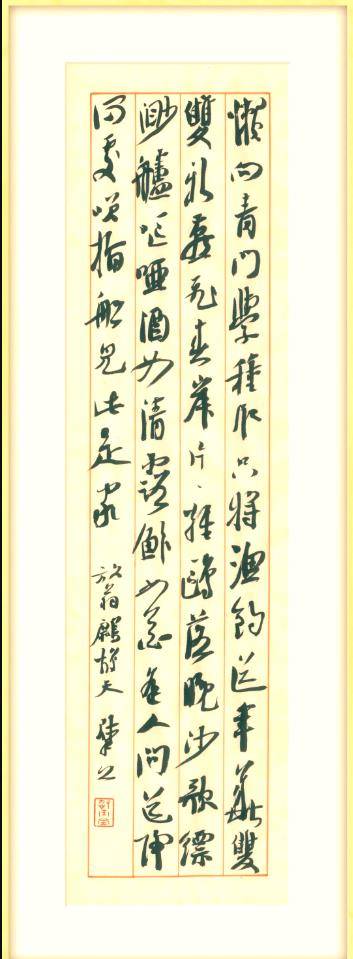 懶向青門學種瓜只將漁釣送年華雙
雙新燕飛春岸片々輕鷗落晚沙歌縹
緲艫嘔啞酒如清露鮓如花逢人問道歸
何處笑指船兒此是家 放翁鷓鴣天